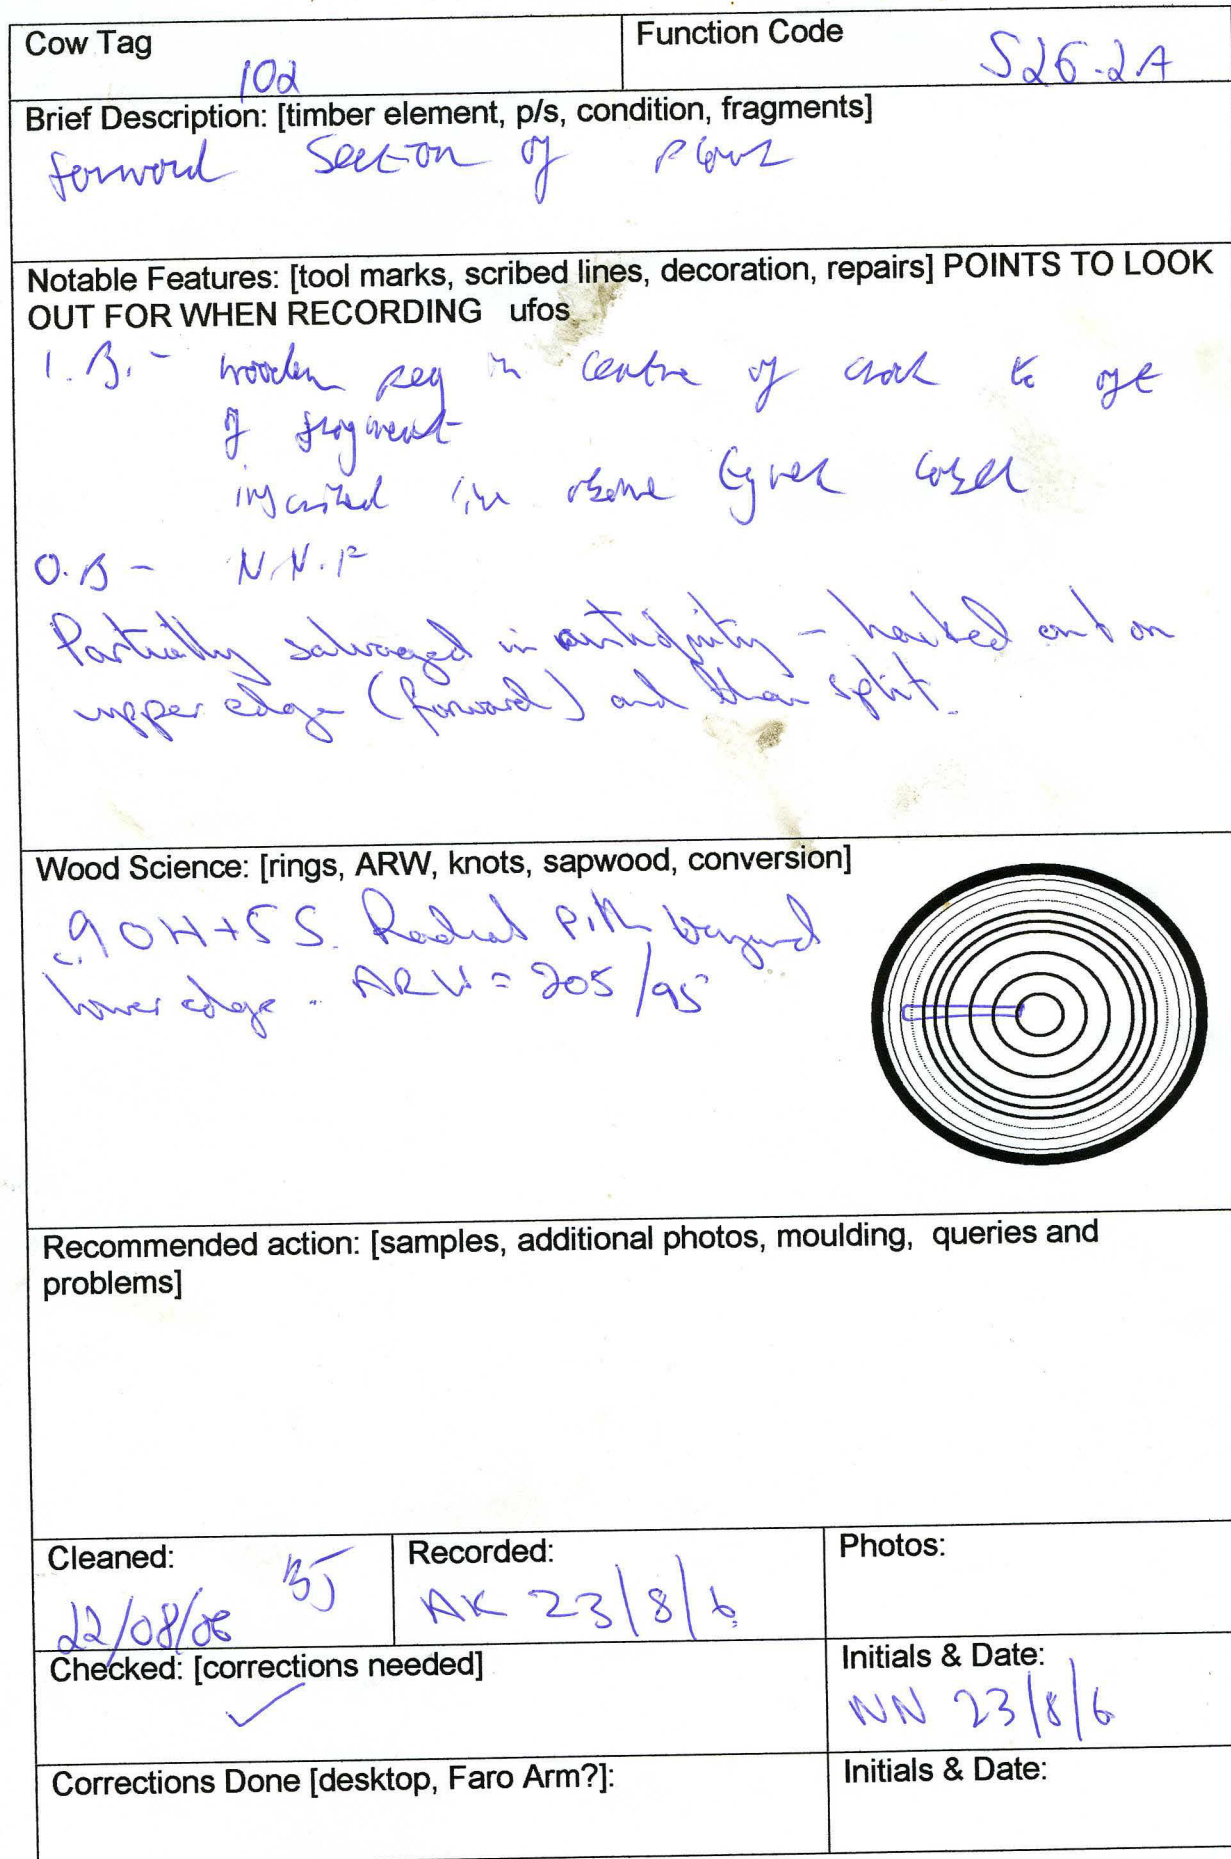 Cow Tag
102
Function Code
S26-2A
Brief Description: [timber element, p/s, condition, fragments]
forward section of plank
Notable Features: [tool marks, scribed lines, decoration, repairs] POINTS TO LOOK
OUT FOR WHEN RECORDING ufos
I.B. - wooden peg in centre of crack to aft
of fragment
inscribed line above
O.B - N.N.F
Partially salvaged in antiquity - hacked out on
upper edge (forward) and then split.
Wood Science: [rings, ARW, knots, sapwood, conversion]
c.90H+5S. Radial pith beyond
lower edge. ARW = 205/95
Recommended action: [samples, additional photos, moulding, queries and
problems]
Cleaned:
BJ
22/08/06
Recorded:
AK 23/8/6
Photos:
Checked: [corrections needed]
✓
Initials & Date:
NN 23/8/6
Corrections Done [desktop, Faro Arm?]:
Initials & Date: